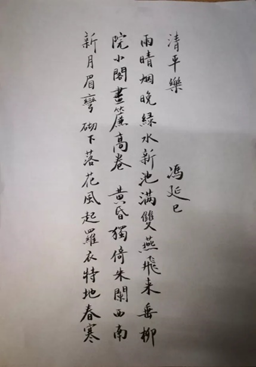 清平樂
馮延巳
雨晴烟晚綠水新池滿雙燕飛來垂柳
院小閣畫簾高卷 黃昏獨倚朱闌西南
新月眉彎砌下落花風起羅衣特地春寒